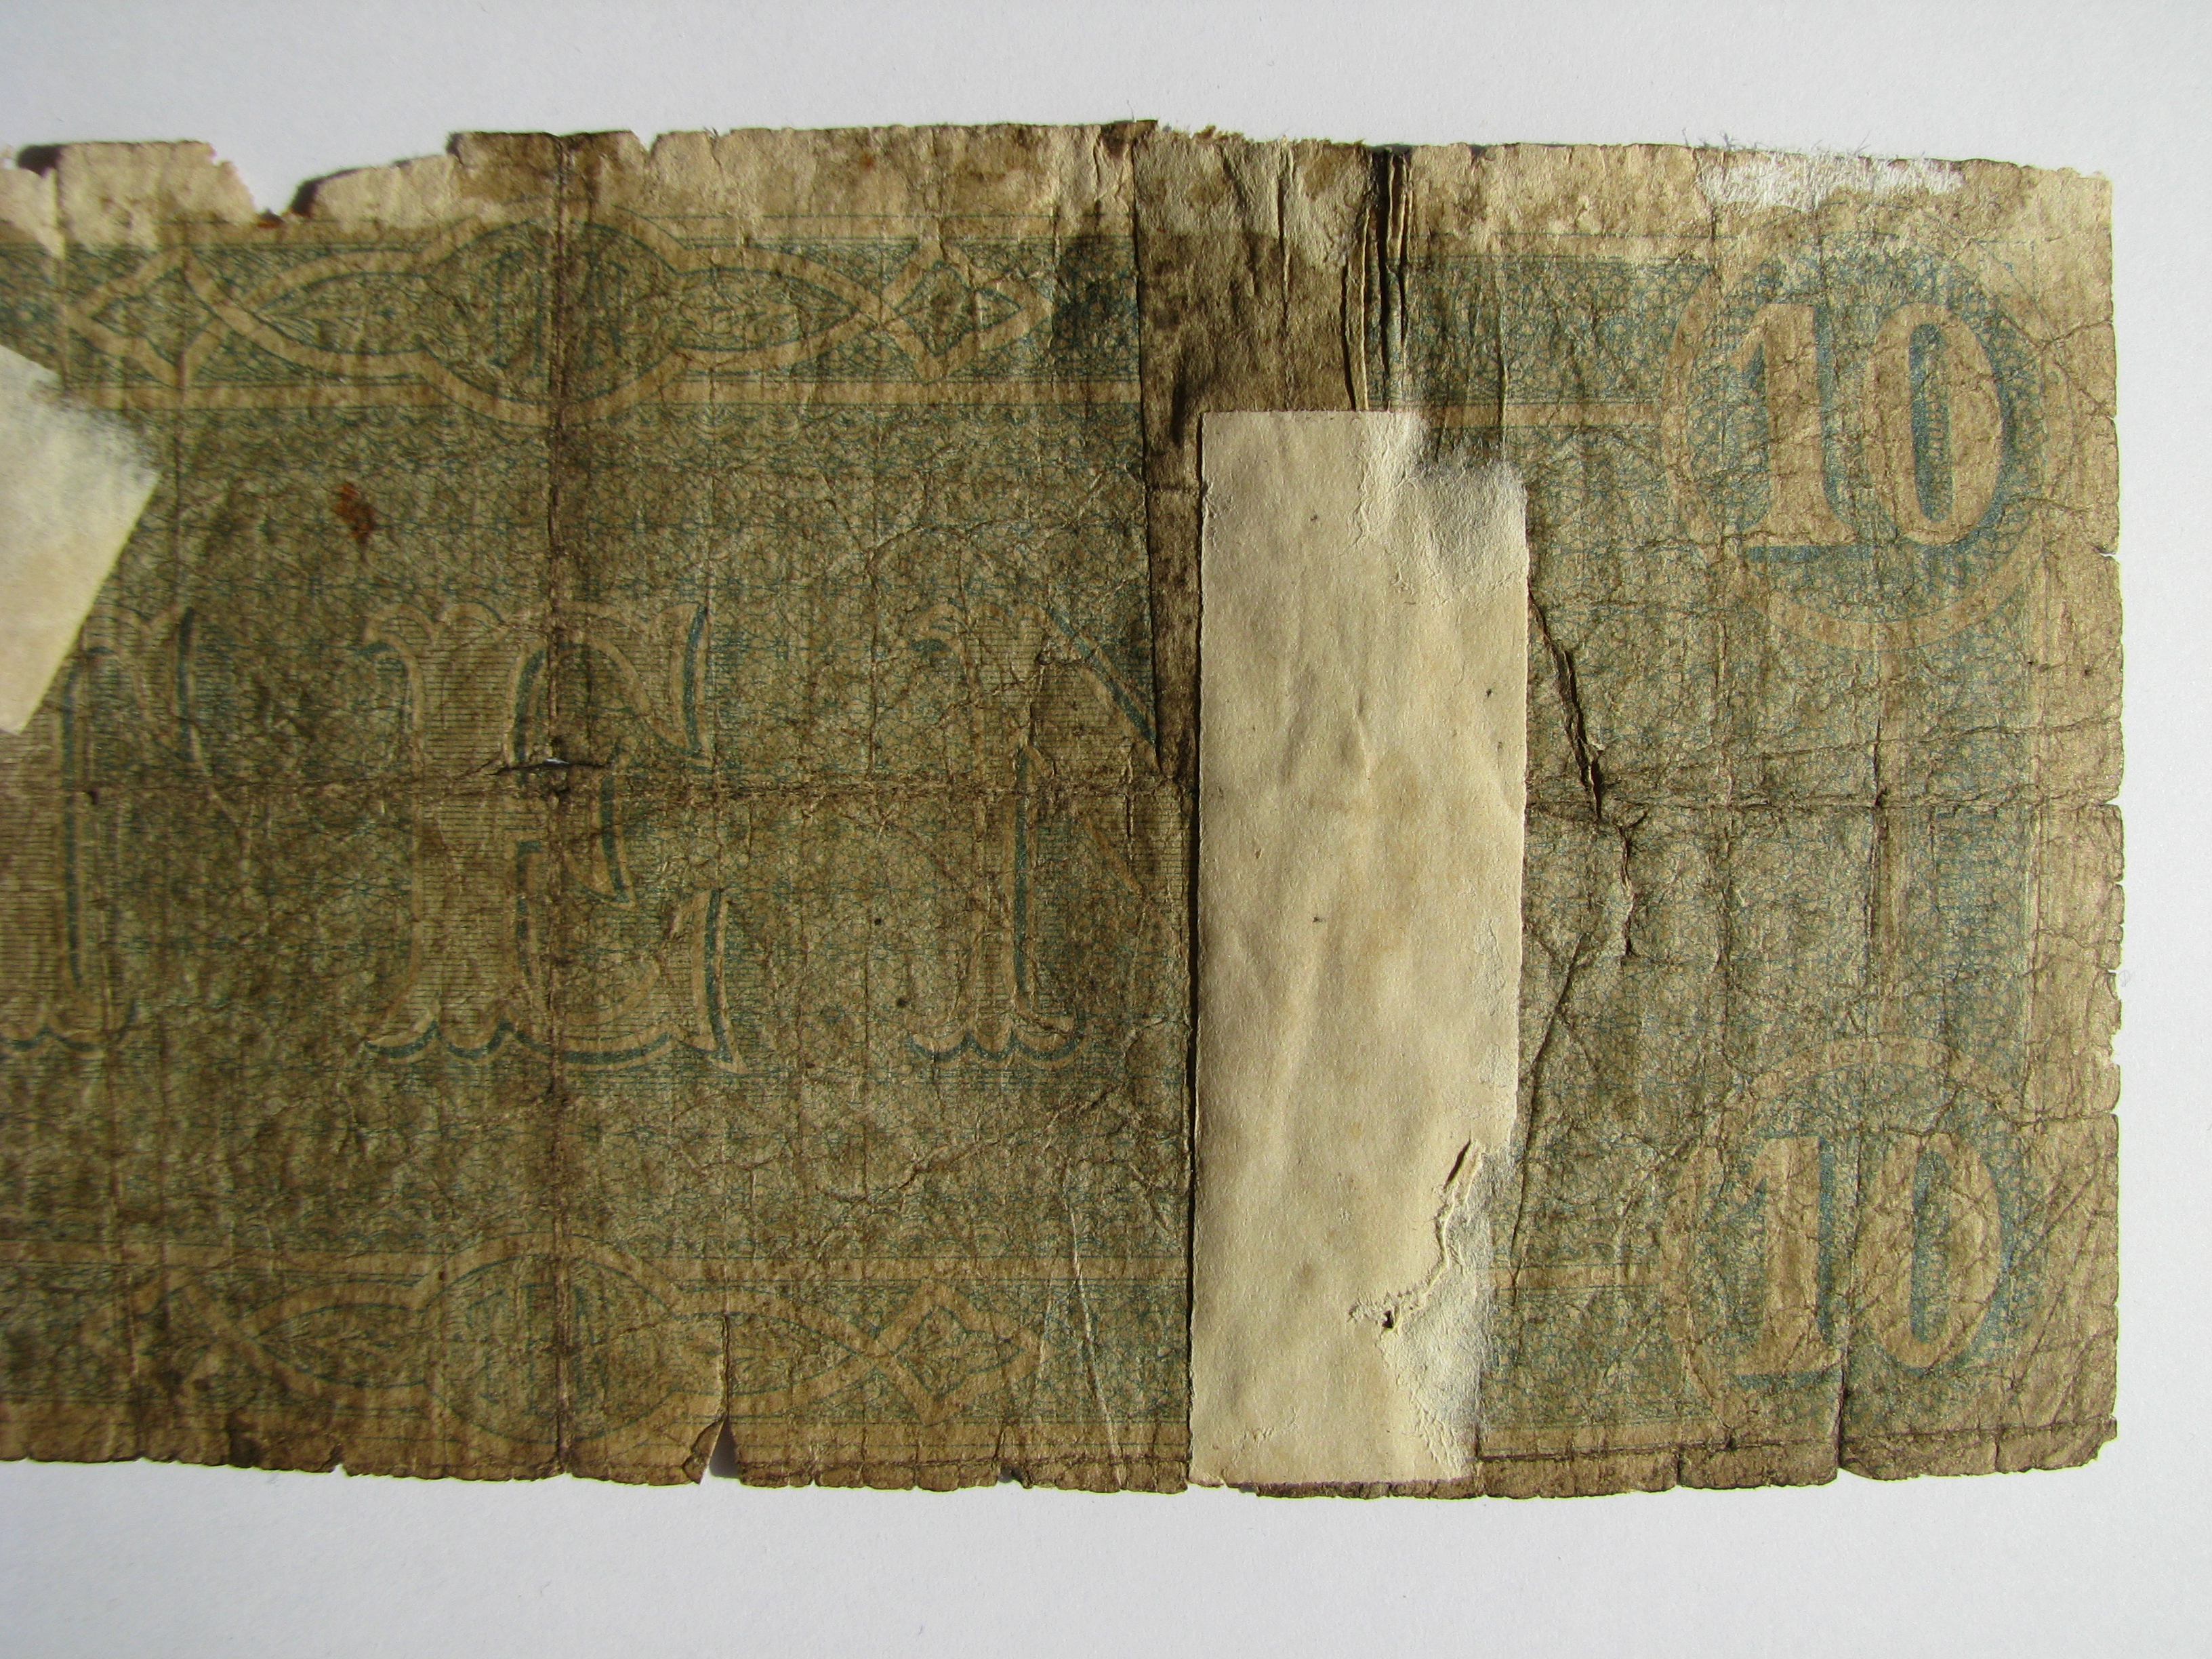 10
TEN
10